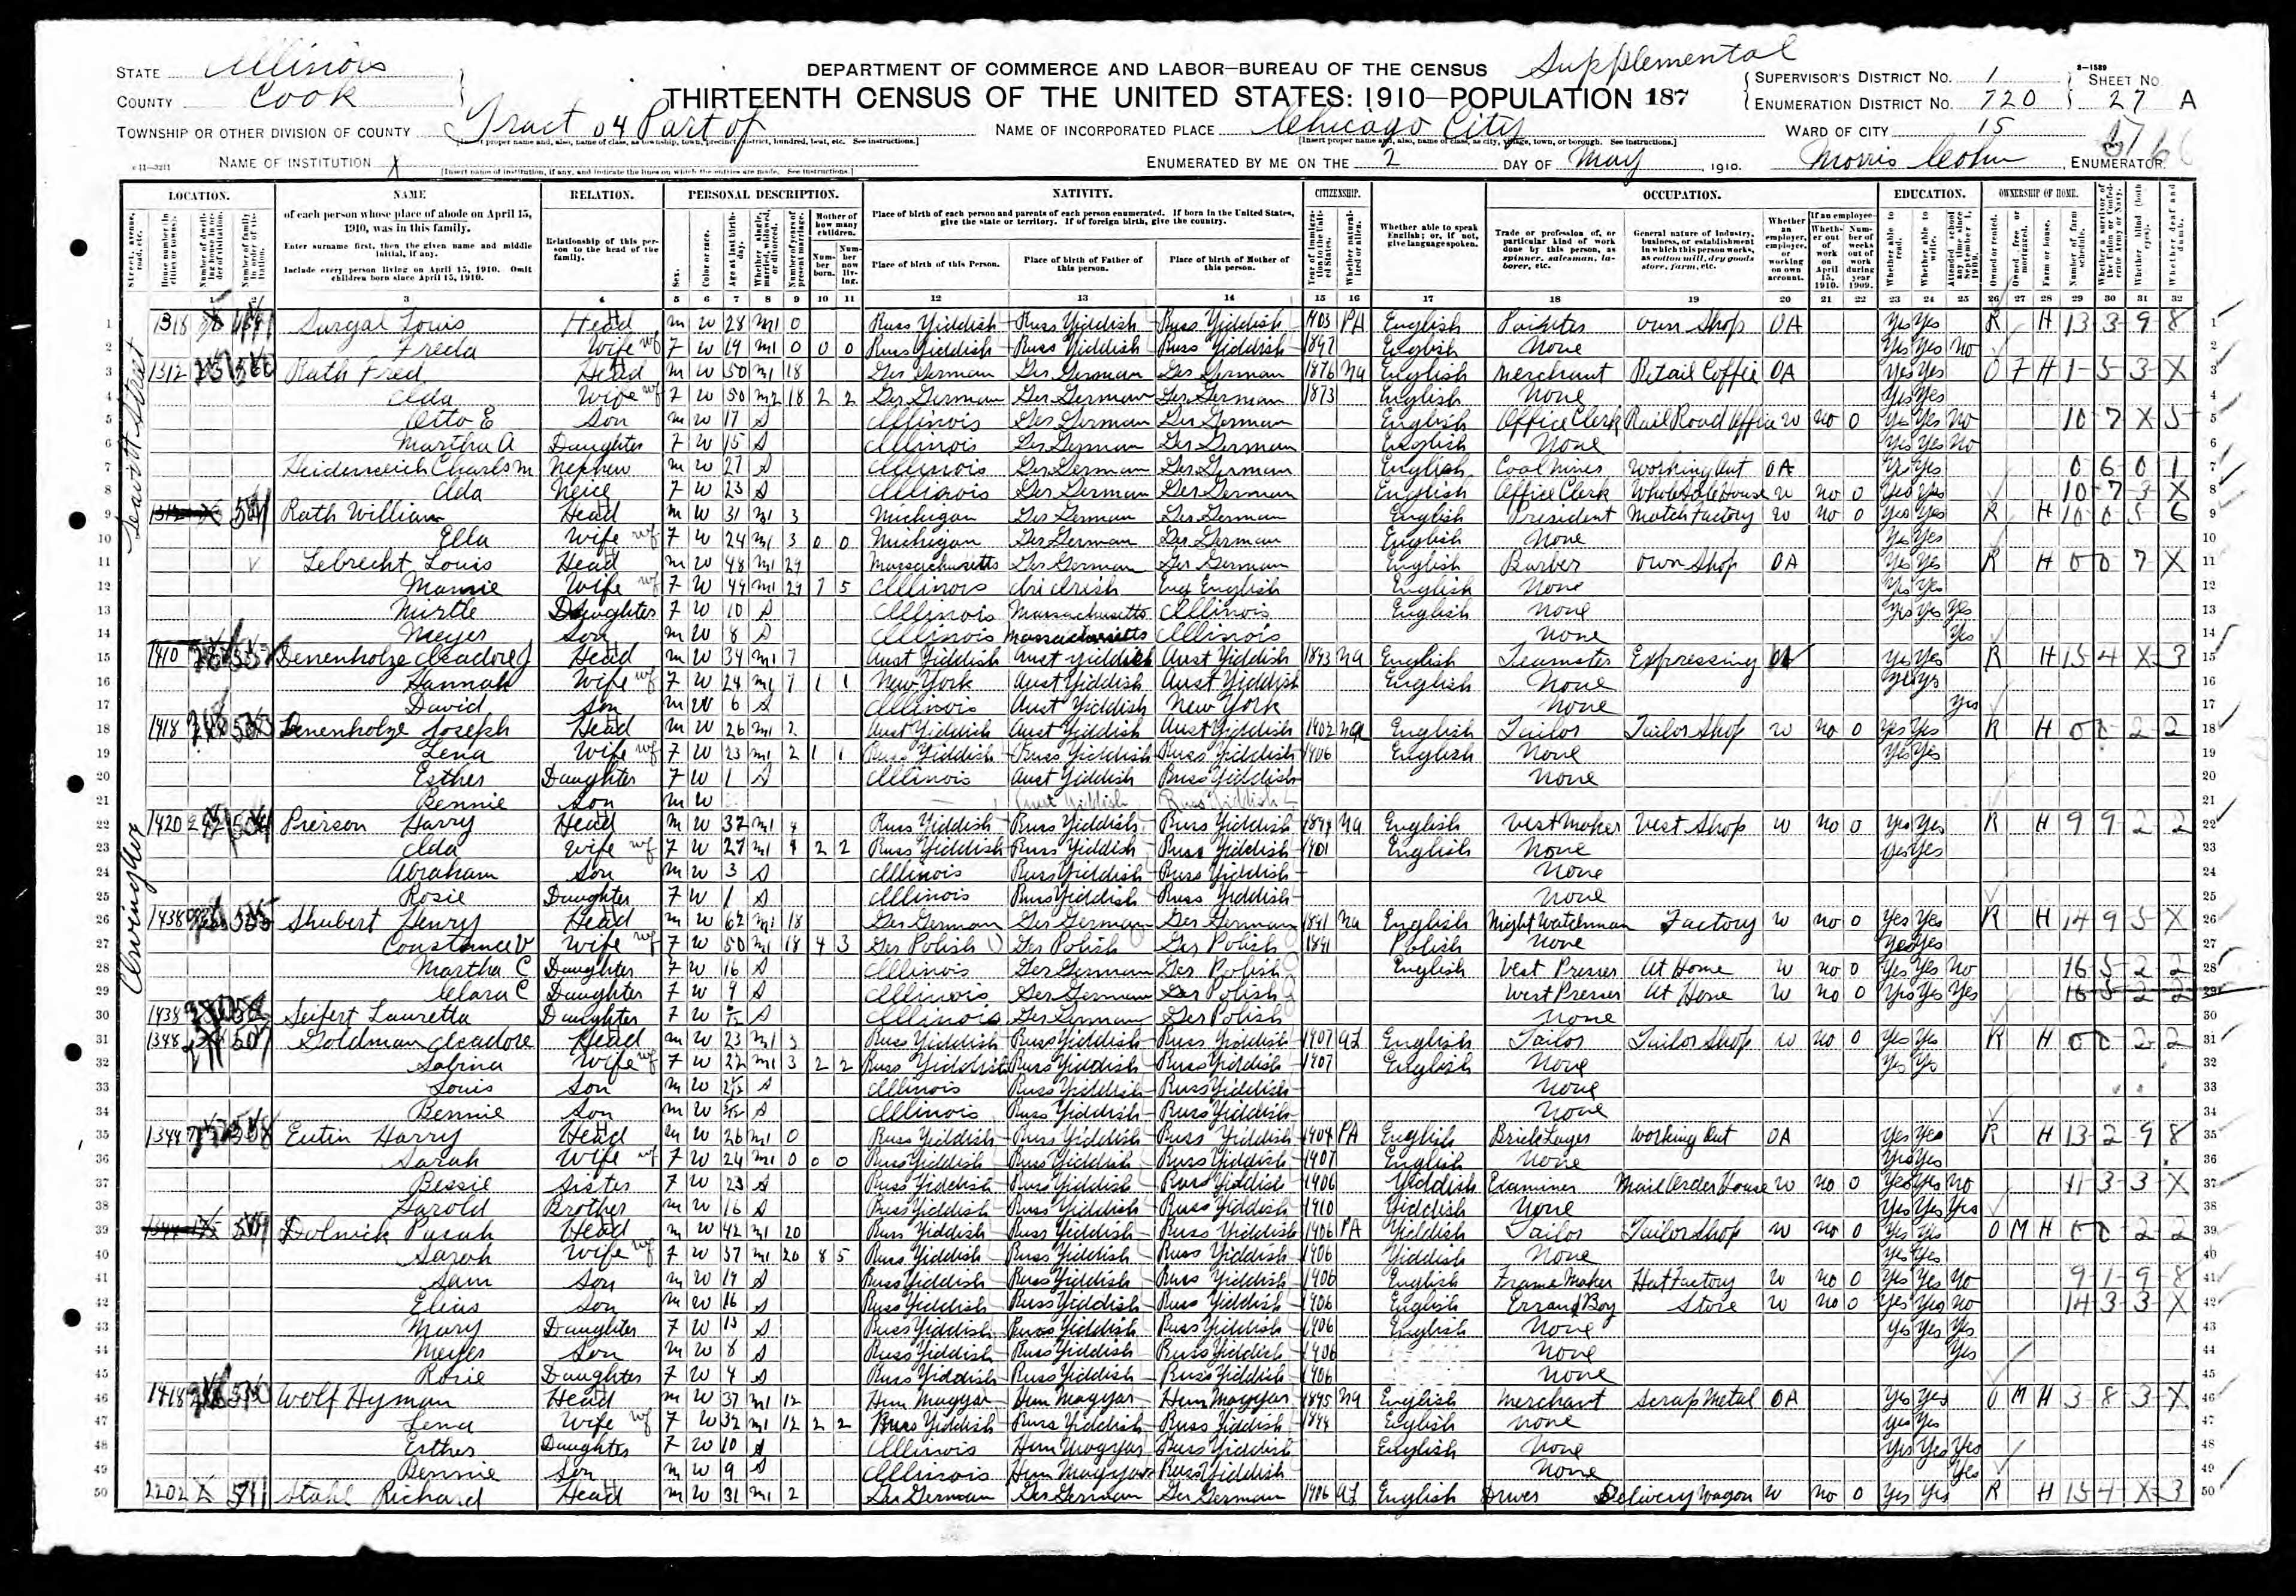 DEPARTMENT OF COMMERCE AND LABOR—BUREAU OF THE CENSUS Supplemental
THIRTEENTH CENSUS OF THE UNITED STATES: 1910—POPULATION 187
STATE Illinois
COUNTY Cook
TOWNSHIP OR OTHER DIVISION OF COUNTY Tract 04 Part of
NAME OF INSTITUTION X
NAME OF INCORPORATED PLACE Chicago City
ENUMERATED BY ME ON THE 2 DAY OF May, 1910.
SUPERVISOR'S DISTRICT NO. 1
ENUMERATION DISTRICT NO. 720
SHEET NO. 27 A
WARD OF CITY 15
Morris Cohn, ENUMERATOR.
LOCATION. NAME RELATION. PERSONAL DESCRIPTION. NATIVITY. CITIZENSHIP. OCCUPATION. EDUCATION. OWNERSHIP OF HOME.
of each person whose place of abode on April 15, 1910, was in this family.
Enter surname first, then the given name and middle initial, if any.
Include every person living on April 15, 1910. Omit children born since April 15, 1910.
Relationship of this person to the head of the family.
Place of birth of each person and parents of each person enumerated. If born in the United States, give the state or territory. If of foreign birth, give the country.
Place of birth of this Person. Place of birth of Father of this person. Place of birth of Mother of this person.
Whether able to speak English; or, if not, give language spoken.
Trade or profession of, or particular kind of work done by this person, as spinner, salesman, laborer, etc.
General nature of industry, business, or establishment in which this person works, as cotton mill, dry goods store, farm, etc.
3 4 5 6 7 8 9 10 11 12 13 14 15 16 17 18 19 20 21 22 23 24 25 26 27 28 29 30 31 32
1 1318 Surgal Louis Head m W 28 m1 0 Russ Yiddish Russ Yiddish Russ Yiddish 1903 PA English Painter Own Shop OA Yes Yes R H 13 3 9 8
2 Freda Wife F W 19 m1 0 0 0 Russ Yiddish Russ Yiddish Russ Yiddish 1897 English None Yes Yes No
3 1312 Rath Fred Head m W 50 m1 18 Ger German Ger German Ger German 1876 Na English Merchant Retail Coffee OA Yes Yes O F H 1 5 3 X
4 Ida Wife F W 50 m2 18 2 2 Ger German Ger German Ger German 1873 English None Yes Yes
5 Otto E Son m W 17 S Illinois Ger German Ger German English Office Clerk Rail Road Office W No 0 Yes Yes No 10 7 X 5
6 Martha A Daughter F W 15 S Illinois Ger German Ger German English None Yes Yes No
7 Heidenreich Charls M Nephew m W 27 S Illinois Ger German Ger German English Coal Miner Working Out OA Yes Yes 0 6 0 1
8 Ida Neice F W 23 S Illinois Ger German Ger German English Office Clerk Wholesale House W No 0 Yes Yes 10 7 3 X
9 Rath William Head m W 31 m1 3 Michigan Ger German Ger German English President Match Factory W No 0 Yes Yes R H 10 0 5 6
10 Ella Wife F W 24 m1 3 0 0 Michigan Ger German Ger German English None Yes Yes
11 Lebrecht Louis Head m W 48 m1 29 Massachusetts Ger German Ger German English Barber Own Shop OA Yes Yes R H 0 0 7 X
12 Mamie Wife F W 49 m1 29 7 5 Illinois Iri Irish Eng English English None Yes Yes
13 Mirtle Daughter F W 10 S Illinois Massachusetts Illinois English None Yes Yes Yes
14 Meyer Son m W 8 S Illinois Massachusetts Illinois None Yes
15 1410 Denenholze Isadore J Head m W 34 m1 7 Aust Yiddish Aust Yiddish Aust Yiddish 1893 Na English Teamster Expressing Yes Yes R H 15 4 X 3
16 Hannah Wife F W 24 m1 7 1 1 New York Aust Yiddish Aust Yiddish English None Yes Yes
17 David Son m W 6 S Illinois Aust Yiddish New York None Yes
18 1418 Denenholze Joseph Head m W 26 m1 2 Aust Yiddish Aust Yiddish Aust Yiddish 1902 Na English Tailor Tailor Shop W No 0 Yes Yes R H 0 0 2 2
19 Lena Wife F W 23 m1 2 1 1 Russ Yiddish Russ Yiddish Russ Yiddish 1906 English None Yes Yes
20 Esther Daughter F W 1 S Illinois Aust Yiddish Russ Yiddish None
21 Bennie Son m W Aust Yiddish Russ Yiddish
22 1420 Pierson Harry Head m W 32 m1 4 Russ Yiddish Russ Yiddish Russ Yiddish Na English Vest Maker Vest Shop W No 0 Yes Yes R H 9 9 2 2
23 Ida Wife F W 27 m1 4 2 2 Russ Yiddish Russ Yiddish Russ Yiddish 1901 English None Yes Yes
24 Abraham Son m W 3 S Illinois Russ Yiddish Russ Yiddish None
25 Rosie Daughter F W 1 S Illinois Russ Yiddish Russ Yiddish None
26 1438 Shubert Henry Head m W 62 m1 18 Ger German Ger German Ger German 1891 Na English Night Watchman Factory W No 0 Yes Yes R H 14 9 5 X
27 Constance V Wife F W 50 m1 18 4 3 Ger Polish Ger Polish Ger Polish 1891 Polish None Yes Yes
28 Martha C Daughter F W 16 S Illinois Ger German Ger Polish English Vest Presser At Home W No 0 Yes Yes No 16 5 2 2
29 Clara C Daughter F W 9 S Illinois Ger German Ger Polish Vest Presser At Home W No 0 Yes Yes Yes 16 5 2 2
30 1438 Seifert Lauretta Daughter F W S Illinois Ger German Ger Polish None
31 1348 Goldman Isadore Head m W 23 m1 3 Russ Yiddish Russ Yiddish Russ Yiddish 1907 AL English Tailor Tailor Shop W No 0 Yes Yes R H 0 0 2 2
32 Sabina Wife F W 22 m1 3 2 2 Russ Yiddish Russ Yiddish Russ Yiddish 1907 English None Yes Yes
33 Louis Son m W S Illinois Russ Yiddish Russ Yiddish None
34 Bennie Son m W S Illinois Russ Yiddish Russ Yiddish None
35 1344 Eutin Harry Head m W 26 m1 0 Russ Yiddish Russ Yiddish Russ Yiddish 1904 PA English Brick Layer Working Out OA Yes Yes R H 13 2 9 8
36 Sarah Wife F W 24 m1 0 0 0 Russ Yiddish Russ Yiddish Russ Yiddish 1907 English None Yes Yes
37 Bessie Sister F W 23 S Russ Yiddish Russ Yiddish Russ Yiddish 1906 Yiddish Examiner Mail Order House W No 0 Yes Yes No 11 3 3 X
38 Harold Brother m W 16 S Russ Yiddish Russ Yiddish Russ Yiddish 1910 Yiddish None Yes Yes Yes
39 Dolnick Head m W 42 m1 20 Russ Yiddish Russ Yiddish Russ Yiddish 1906 PA Yiddish Tailor Tailor Shop W No 0 Yes Yes O M H 0 0 2 2
40 Sarah Wife F W 37 m1 20 8 5 Russ Yiddish Russ Yiddish Russ Yiddish 1906 Yiddish None Yes Yes
41 Sam Son m W 19 S Russ Yiddish Russ Yiddish Russ Yiddish 1906 English Frame Maker Hat Factory W No 0 Yes Yes No 9 1 9 8
42 Elias Son m W 16 S Russ Yiddish Russ Yiddish Russ Yiddish 1906 English Errand Boy Store W No 0 Yes Yes No 14 3 3 X
43 Mary Daughter F W 13 S Russ Yiddish Russ Yiddish Russ Yiddish 1906 English None Yes Yes Yes
44 Meyer Son m W 8 S Russ Yiddish Russ Yiddish Russ Yiddish 1906 None Yes
45 Rosie Daughter F W 4 S Russ Yiddish Russ Yiddish Russ Yiddish 1906 None
46 1418 Wolf Hyman Head m W 37 m1 12 Hun Magyar Hun Magyar Hun Magyar 1895 Na English Merchant Scrap Metal OA Yes Yes O M H 3 8 3 X
47 Lena Wife F W 32 m1 12 2 2 Russ Yiddish Russ Yiddish Russ Yiddish 1894 English None Yes Yes
48 Esther Daughter F W 10 S Illinois Hun Magyar Russ Yiddish English None Yes Yes Yes
49 Bennie Son m W 9 S Illinois Hun Magyar Russ Yiddish None Yes
50 2202 Stahl Richard Head m W 31 m1 2 Ger German Ger German Ger German 1906 AL English Driver Delivery Wagon W No 0 Yes Yes R H 15 4 X 3